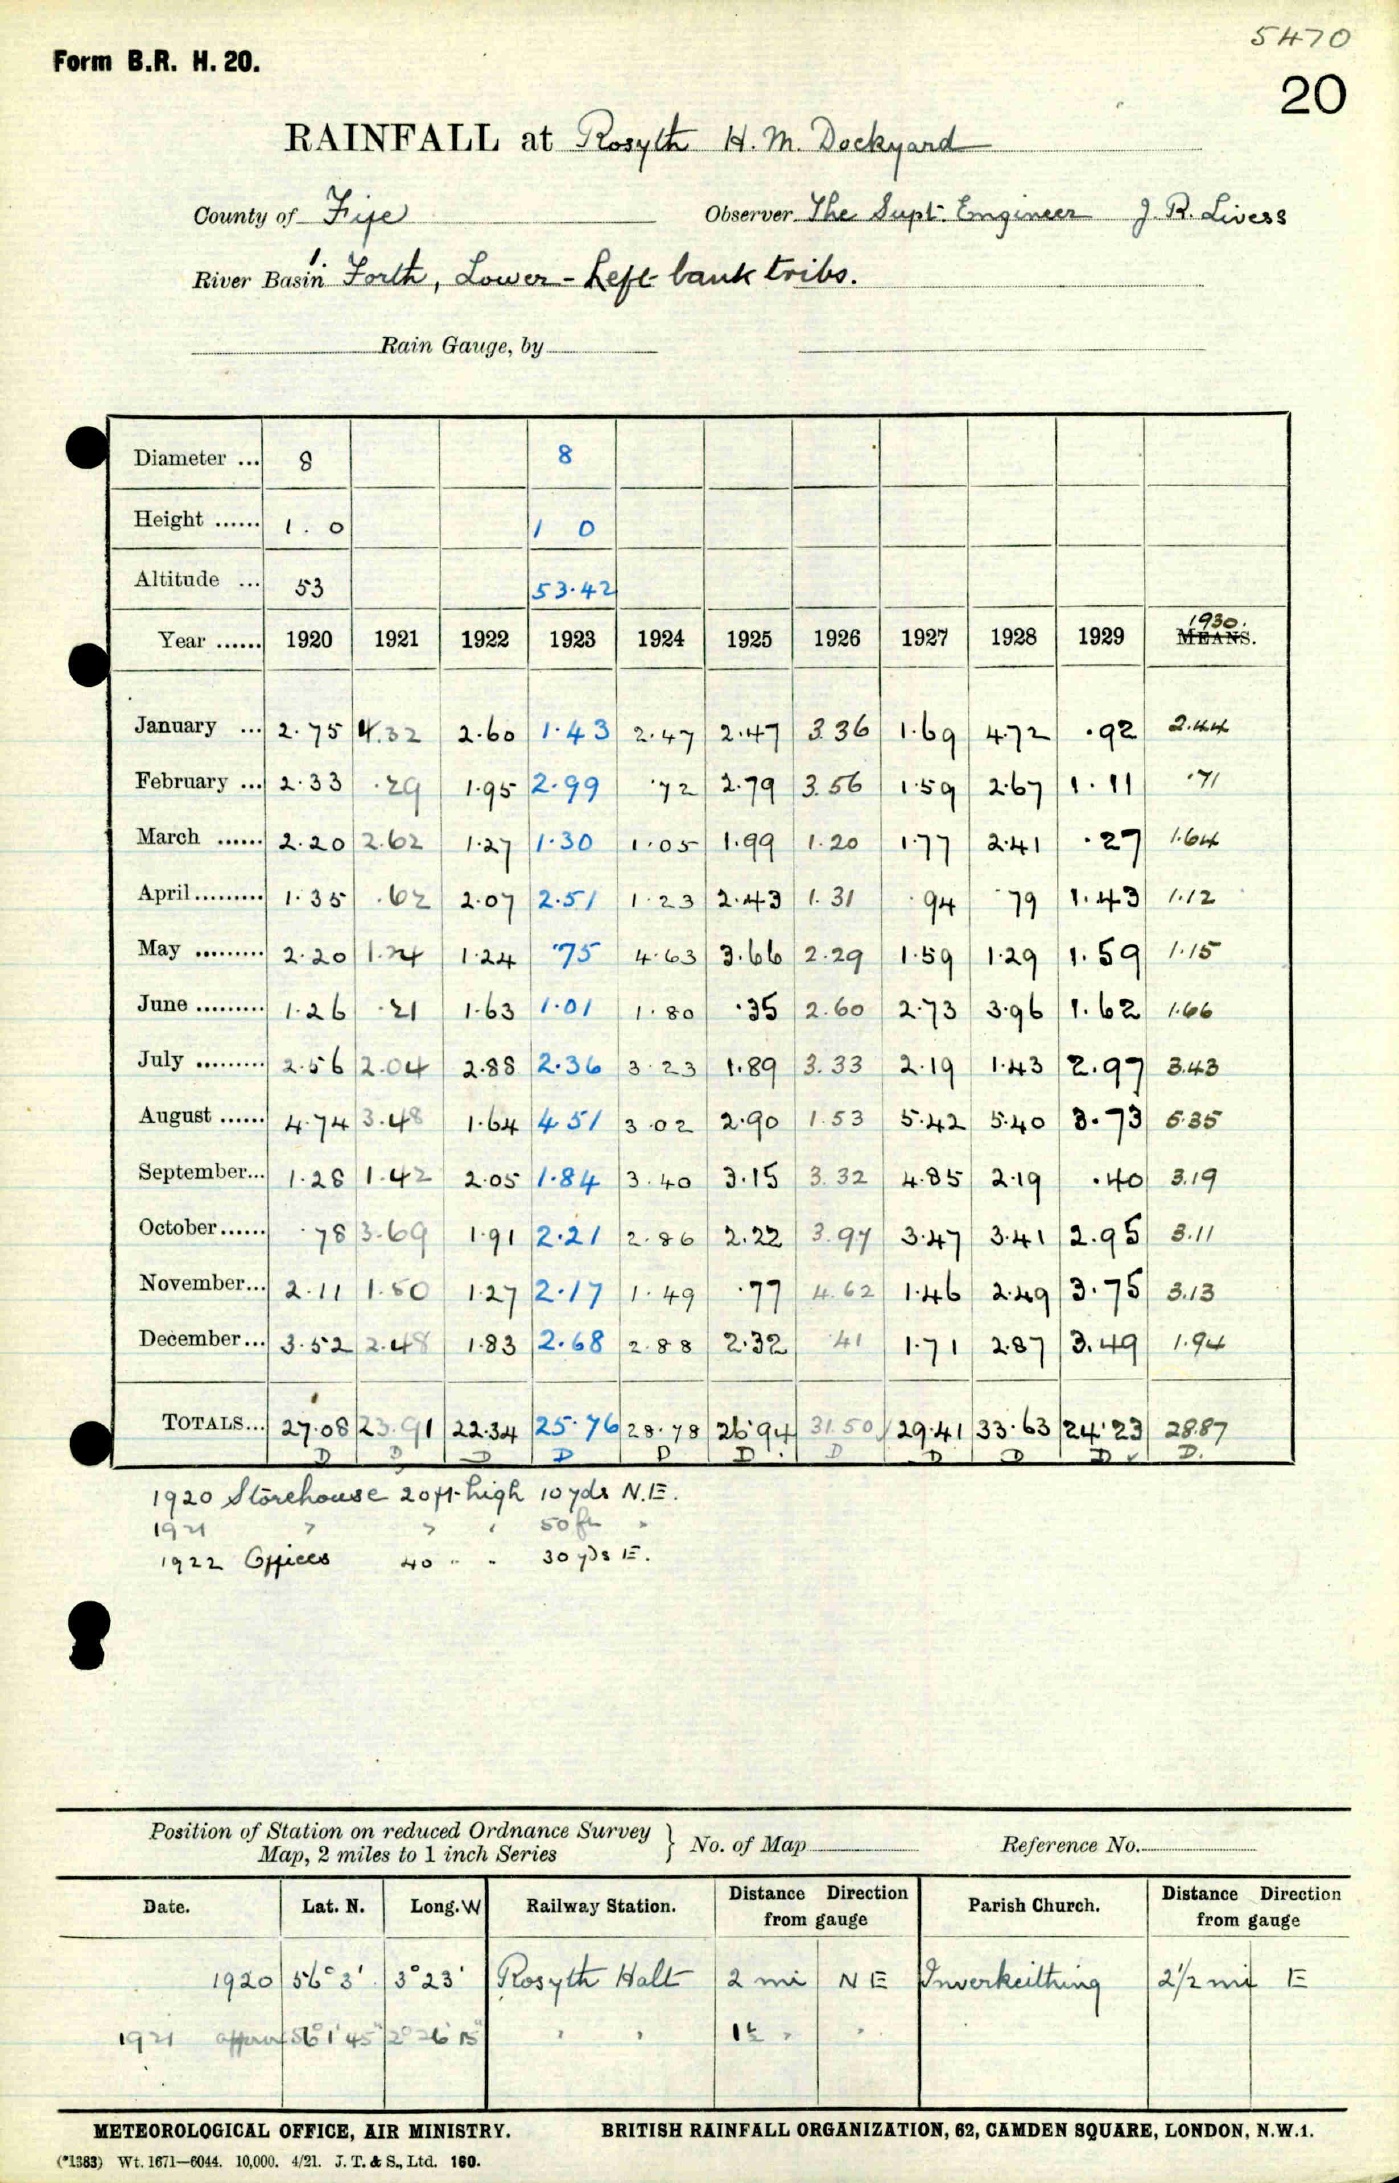 5470
Form B.R. H. 20.
20
RAINFALL at Rosyth H. M. Dockyard
County of Fife Observer The Supt. Engineer J. R. Livess
River Basin Forth, Lower - Left bank tribs.
Rain Gauge, by
Diameter ... 8 8
Height ...... 1. 0 1 0
Altitude ... 53 53.42
Year ...... 1920 1921 1922 1923 1924 1925 1926 1927 1928 1929 1930. MEANS.
January ... 2.75 4.32 2.60 1.43 2.47 2.47 3.36 1.69 4.72 .92 2.44
February ... 2.33 .29 1.95 2.99 .72 2.79 3.56 1.59 2.67 1.11 .71
March ...... 2.20 2.62 1.27 1.30 1.05 1.99 1.20 1.77 2.41 .27 1.64
April ......... 1.35 .62 2.07 2.51 1.23 2.43 1.31 .94 .79 1.43 1.12
May ......... 2.20 1.24 1.24 .75 4.63 3.66 2.29 1.59 1.29 1.59 1.15
June ......... 1.26 .21 1.63 1.01 1.80 .35 2.60 2.73 3.96 1.62 1.66
July ......... 2.56 2.04 2.88 2.36 3.23 1.89 3.33 2.19 1.43 2.97 3.43
August ...... 4.74 3.48 1.64 4.51 3.02 2.90 1.53 5.42 5.40 3.73 5.35
September... 1.28 1.42 2.05 1.84 3.40 3.15 3.32 4.85 2.19 .40 3.19
October...... .78 3.69 1.91 2.21 2.86 2.22 3.97 3.47 3.41 2.95 3.11
November... 2.11 1.50 1.27 2.17 1.49 .77 4.62 1.46 2.49 3.75 3.13
December... 3.52 2.48 1.83 2.68 2.88 2.32 .41 1.71 2.87 3.49 1.94
TOTALS... 27.08 23.91 22.34 25.76 28.78 26.94 31.50 29.41 33.63 24.23 28.87
D D D D D D D D D D D.
1920 Storehouse 20 ft. high 10 yds N.E.
1921 " " " 50 ft "
1922 Offices 40 " " 30 yds E.
Position of Station on reduced Ordnance Survey Map, 2 miles to 1 inch Series } No. of Map Reference No.
Date. Lat. N. Long. W Railway Station. Distance Direction from gauge Parish Church. Distance Direction from gauge
1920 56° 3' 3° 23' Rosyth Halt 2 mi N E Inverkeithing 2 1/2 mi E
1921 approx 56° 1' 45" 2° 26' 15" " " 1 1/2 " "
METEOROLOGICAL OFFICE, AIR MINISTRY. BRITISH RAINFALL ORGANIZATION, 62, CAMDEN SQUARE, LONDON, N.W.1.
(*1383) Wt. 1671—6044. 10,000. 4/21. J. T. & S., Ltd. 160.